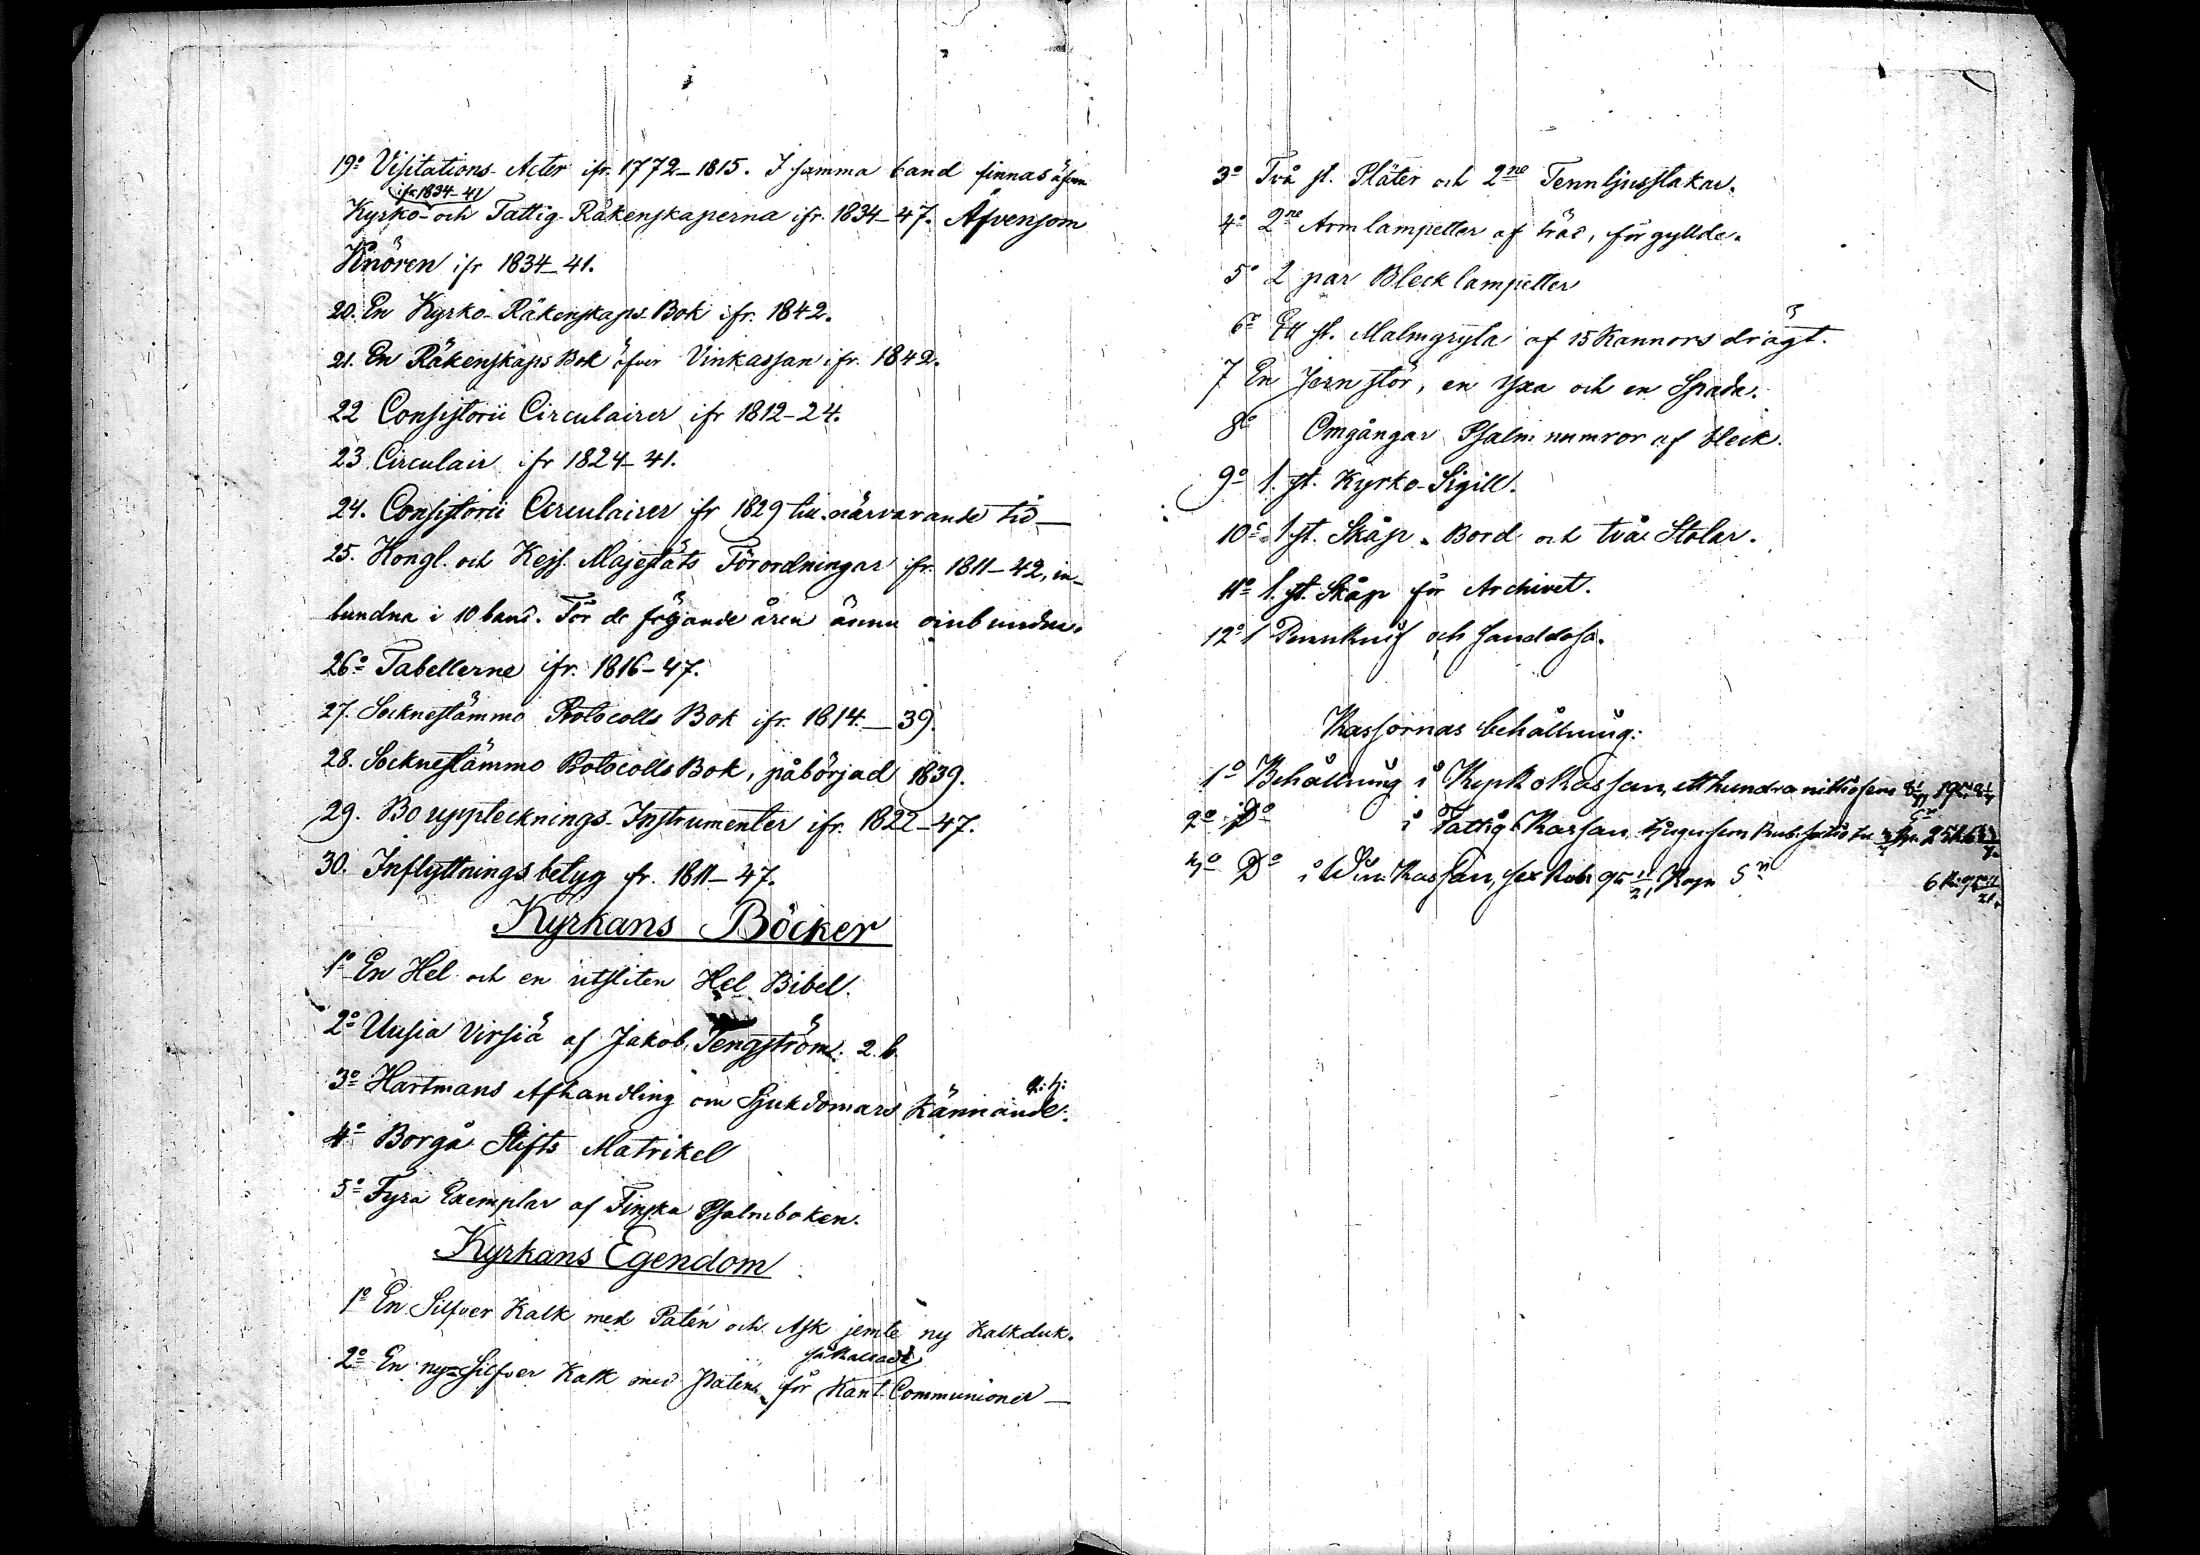 19o Visitations-Acter ifr. 1772-1815. I samma band finnas äfven
ifr 1834-41
Kyrko- och Fattig-Räkenskaperna ifr. 1834-47. Äfvensom
ifr 1834-41.
20. En Kyrko-Räkenskaps-Bok ifr. 1842.
21. En Räkenskaps Bok öfver Vinkassan ifr. 1842.
22 Consistorii Circulairer ifr 1812-24.
23 Circulair ifr 1824-41.
24. Consistorii Circulairer ifr 1829 till närvarande tid—
25. Kongl. och Kejs. Majestäts Förordningar ifr. 1811-42, in-
bundna i 10 band. För de följande åren ännu oinbundna.
26o Tabellerne ifr. 1816-47.
27. Socknestämmo Protocolls Bok ifr. 1814—39.
28. Socknestämmo Protocolls Bok, påbörjad 1839.
29. Boupptecknings-Instrumenter ifr. 1822-47.
30. Inflyttningsbetyg fr. 1811-47.
Kyrkans Böcker
1o En Hel och en utsliten Hel Bibel.
2o Uusia Virsiä af Jakob Tengström. 2. b.
3o Hartmans Afhandling om Sjukdomars Kännande.
4o Borgå Stifts Matrikel
5o Fyra Exemplar af Finska Psalmboken.
Kyrkans Egendom
1o En Silfver Kalk med Patén och Ask jemte ny Kalkduk.
såkallade
2o En ny Silfver Kalk med Patén för Communioner—
3o Två st. Pläter och 2ne Tennljusstakar.
4o 2ne Armlampetter af träd, förgyllde.
5o 2 par Blecklampetter
6o Ett st. Malmgryta af 15 Kannors drägt.
7 En Jernstör, en yxa och en Spada.
8o Omgångar Psalm nummror af bleck.
9o 1. st. Kyrko-Sigill.
10o 1 st. Skåp. Bord och två Stolar.
11o 1. st. Skåp för Archivet.
12o 1 Pennknif och sanddosa.
Kassornas behållning:
1o Behållning i Kyrkokassan, ett hundra nittiofem
2o Do i Fattig Kassan, tjugufem Rub.
3o Do i Vin Kassan, sex Rub. 95 11/21 Kop. Sr 6 R. 95 11/21.